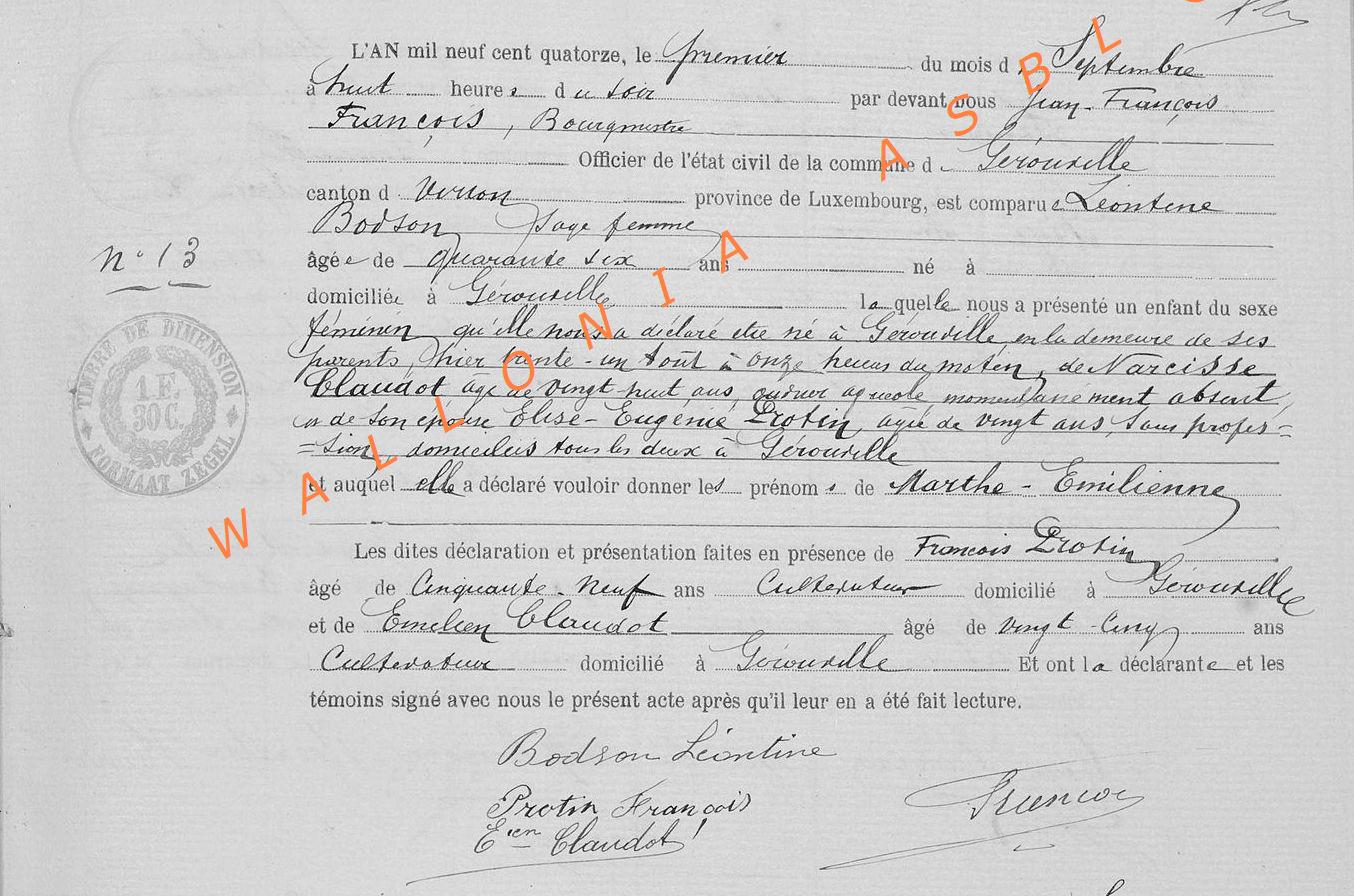 L'AN mil neuf cent quatorze, le premier du mois d Septembre
à huit heures du soir par devant nous Jean-François
François, Bourgmestre
Officier de l'état civil de la commune d Gérouville
canton d Virton province de Luxembourg, est comparue Léontine
Bodson, Sage femme
âgée de quarante six ans né à
domiciliée à Gérouville laquelle nous a présenté un enfant du sexe
féminin qu'elle nous a déclaré être né à Gérouville, en la demeure de ses
parents, hier trente-un Aout à onze heures du matin, de Narcisse
Claudot âgé de vingt huit ans, ouvrier agricole momentanement absent,
et de son épouse Elise-Eugénie Protin, agée de vingt ans, Sans profes=
=sion, domiciliés tous les deux à Gérouville
et auquel elle a déclaré vouloir donner les prénoms de Marthe-Emilienne
N° 13
TIMBRE DE DIMENSION
1 F.
30 C.
FORMAAT ZEGEL
Les dites déclaration et présentation faites en présence de François Protin
âgé de Cinquante-Neuf ans Cultivateur domicilié à Gérouville
et de Emilien Claudot âgé de vingt-Cinq ans
Cultivateur domicilié à Gérouville Et ont la déclarante et les
témoins signé avec nous le présent acte après qu'il leur en a été fait lecture.
Bodson Léontine
Protin François
Eien Claudot
François
WALLONIA ASBL